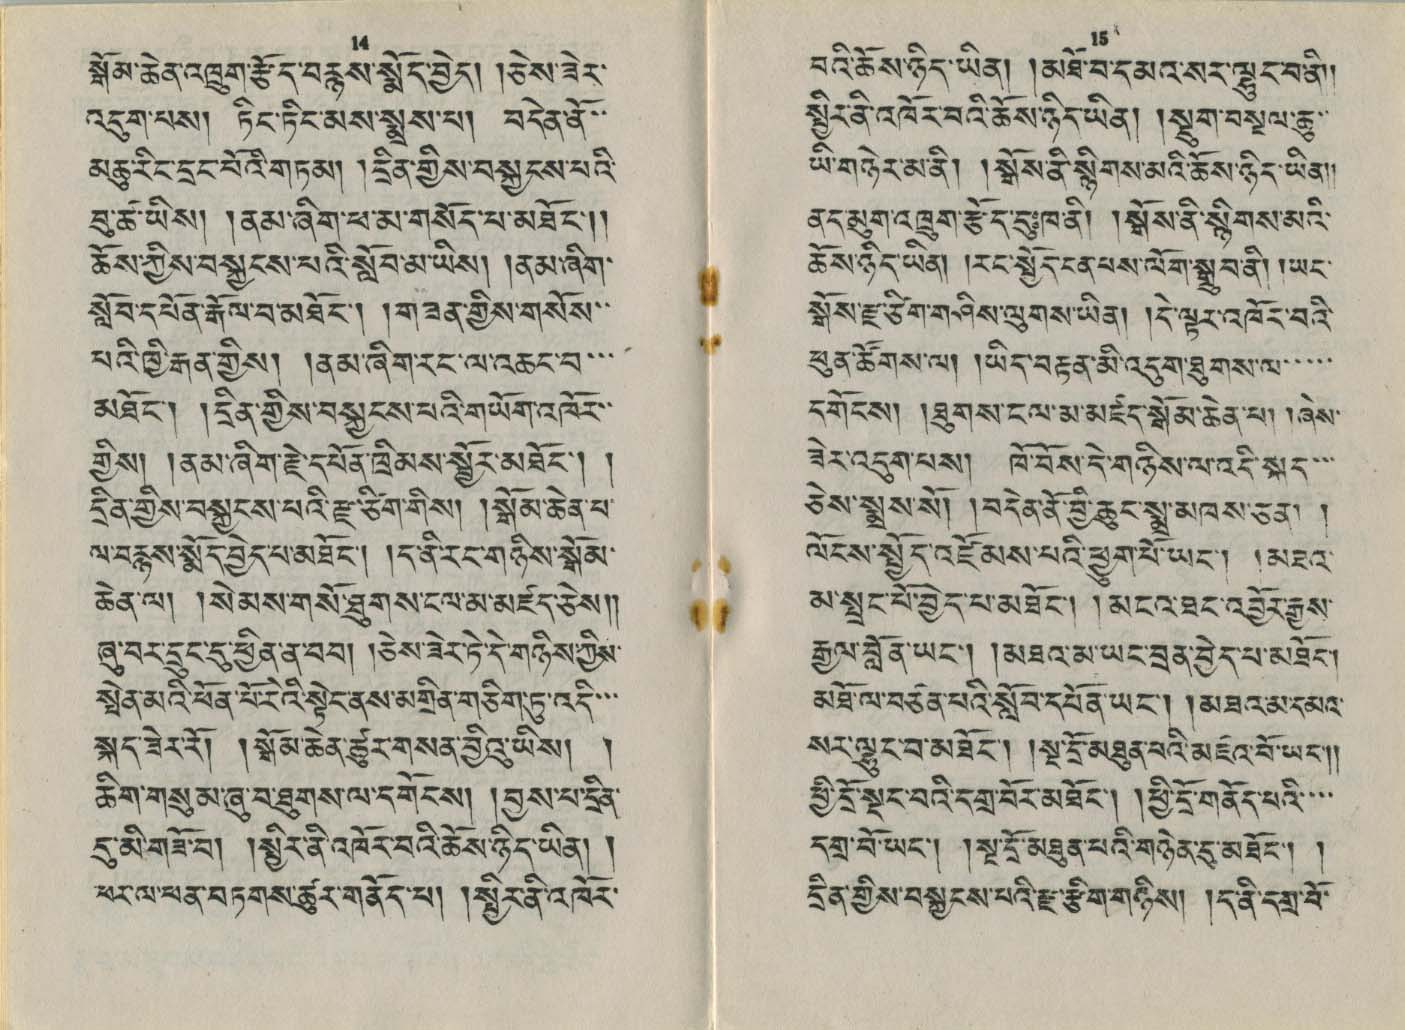 14
སྒོམ་ཆེན་འཁྲུག་རྩོད་བརྙས་སྨོད་བྱེད། །ཅེས་ཟེར་
འདུག་པས། ཏིང་ཏིང་མས་སྨྲས་པ། བདེན་ནོ་··
མཆུ་རིང་དྲང་པོའི་གཏམ། །དྲིན་གྱིས་བསྐྱངས་པའི་
བུ་ཚ་ཡིས། །ནམ་ཞིག་ཕ་མ་གསོད་པ་མཐོང་།།
ཆོས་ཀྱིས་བསྐྱངས་པའི་སློབ་མ་ཡིས། །ནམ་ཞིག་
སློབ་དཔོན་རྒོལ་བ་མཐོང་། །གཟན་གྱིས་གསོས་··
པའི་ཁྱི་རྒན་གྱིས། །ནམ་ཞིག་རང་ལ་འཆང་བ་···
མཐོང་། །དྲིན་གྱིས་བསྐྱངས་པའི་གཡོག་འཁོར་··
གྱིས། །ནམ་ཞིག་རྗེ་དཔོན་ཁྲིམས་སྦྱོར་མཐོང་། །
དྲིན་གྱིས་བསྐྱངས་པའི་རྫ་ཙིག་གིས། །སྒོམ་ཆེན་པ་
ལ་བརྙས་སྨོད་བྱེད་པ་མཐོང་། །ད་ནི་རང་གཉིས་སྒོམ་
ཆེན་ལ། །སེམས་གསོ་ཐུགས་ངལ་མ་མཛད་ཅེས།།
ཞུ་བར་དྲུང་དུ་ཕྱིན་ན་བབ། །ཅེས་ཟེར་ཏེ་དེ་གཉིས་ཀྱིས་
སྤེན་མའི་ཕོན་པོ་རེའི་སྟེང་ནས་མགྲིན་གཅིག་ཏུ་འདི་···
སྐད་ཟེར་རོ། །སྒོམ་ཆེན་ཚུར་གསན་བྱིའུ་ཡིས། །
ཚིག་གསུམ་ཞུ་བ་ཐུགས་ལ་དགོངས། །བྱས་པ་དྲིན་
དུ་མི་གཟོ་བ། །སྤྱིར་ནི་འཁོར་བའི་ཆོས་ཉིད་ཡིན། །
ཕར་ལ་ཕན་བཏགས་ཚུར་གནོད་པ། །སྤྱིར་ནི་འཁོར་
15
བའི་ཆོས་ཉིད་ཡིན། །མཐོ་བ་དམའ་སར་ལྷུང་བ་ནི།།
སྤྱིར་ནི་འཁོར་བའི་ཆོས་ཉིད་ཡིན། །སྡུག་བསྔལ་ཆུ་··
ཡི་གཉེར་མ་ནི། །སྒོས་ནི་སྙིགས་མའི་ཆོས་ཉིད་ཡིན།།
ནད་མུག་འཁྲུག་རྩོད་དུཿཁ་ནི། །སྒོས་ནི་སྙིགས་མའི་
ཆོས་ཉིད་ཡིན། །རང་སྤྱོད་ངན་པས་ལོག་སྒྲུབ་ནི། །ཡང་
སྒོས་རྫ་ཙིག་གཤིས་ལུགས་ཡིན། །དེ་ལྟར་འཁོར་བའི་
ཕུན་ཚོགས་ལ། །ཡིད་བརྟན་མི་འདུག་ཐུགས་ལ་·····
དགོངས། །ཐུགས་ངལ་མ་མཛད་སྒོམ་ཆེན་པ། །ཞེས་
ཟེར་འདུག་པས། ཁོ་བོས་དེ་གཉིས་ལ་འདི་སྐད་···
ཅེས་སྨྲས་སོ། །བདེན་ནོ་བྱི་ཆུང་སྨྲ་མཁས་ཅན། །
ལོངས་སྤྱོད་འཛོམས་པའི་ཕྱུག་པོ་ཡང་། །མཐའ་
མ་སྤྲང་པོ་བྱེད་པ་མཐོང་། །མངའ་ཐང་འབྱོར་རྒྱས་
རྒྱལ་བློན་ཡང་། །མཐའ་མ་ཡང་བྲན་བྱེད་པ་མཐོང་།
མཐོ་ལ་བཙན་པའི་སློབ་དཔོན་ཡང་། །མཐའ་མ་དམའ་
སར་ལྷུང་བ་མཐོང་། །སྔ་དྲོ་མཐུན་པའི་མཛའ་བོ་ཡང་།།
ཕྱི་དྲོ་སྡང་བའི་དགྲ་བོར་མཐོང་། །ཕྱི་དྲོ་གནོད་པའི་···
དགྲ་བོ་ཡང་། །སྔ་དྲོ་མཐུན་པའི་གཉེན་དུ་མཐོང་། །
དྲིན་གྱིས་བསྐྱངས་པའི་རྫ་རྩིག་གཉིས། །ད་ནི་དགྲ་བོ་